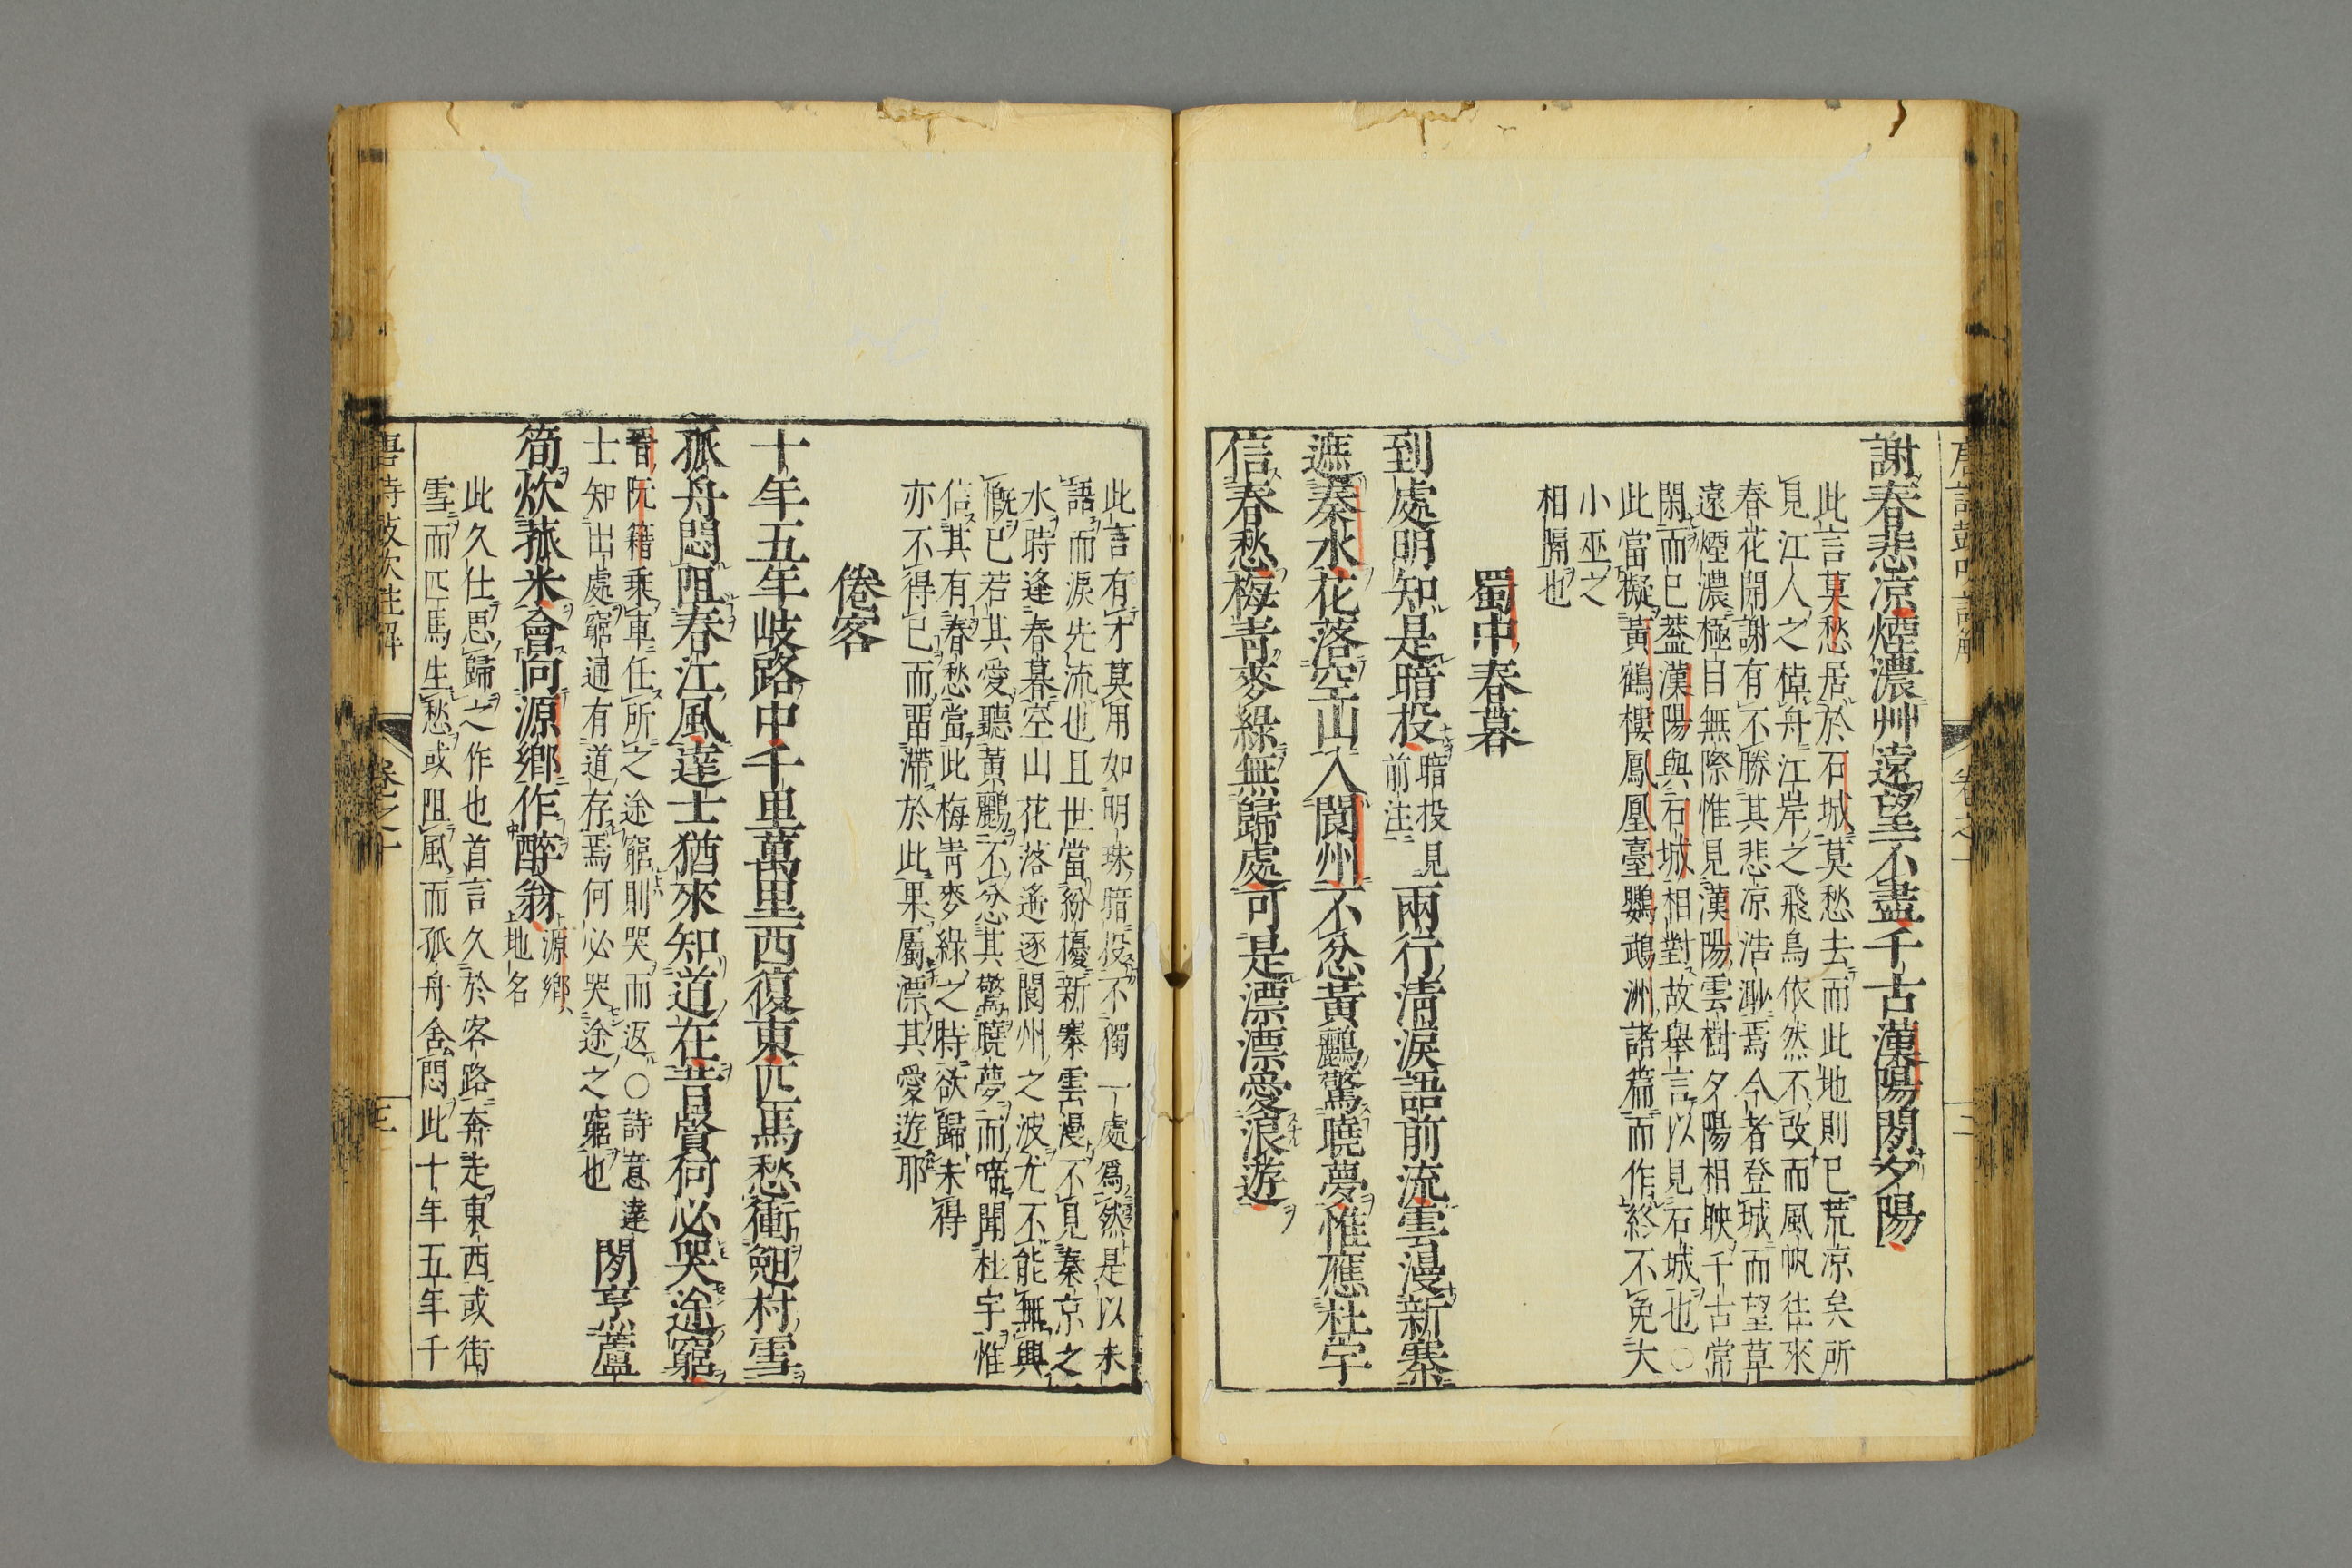 謝春悲凉煙濃艸遠望不盡千古漢陽閑夕陽
此言莫愁居於石城莫愁去而此地則已荒凉矣所
見江人之棹舟江岸之飛鳥依然不改而風帆往來
春花開謝有不勝其悲凉浩渺焉今者登城而望草
遠煙濃極目無際惟見漢陽雲樹夕陽相映千古常
閑而已蓋漢陽與石城相對故舉言以見石城也○
此當擬黃鶴樓鳳凰臺鸚鵡洲諸篇而作終不免大
小巫之
相隔也
蜀中春暮
到處明知是暗投暗投見前注兩行清淚語前流雲漫新寨
遮秦水花落空山入閬州不忿黃鸝驚曉夢惟應杜宇
信春愁梅青麥綠無歸處可是漂漂愛浪遊
此言有才莫用如明珠暗投不獨一處爲然是以未
語而淚先流也且世當紛擾新寨雲漫不見秦京之
水時逢春暮空山花落遙逐閬州之波尤不能無興
慨已若其愛聽黃鸝不忿其驚曉夢而啼聞杜宇惟
信其有春愁當此梅靑麥綠之時欲歸未得
亦不得已而畱滯於此果屬漂其愛遊耶
倦客
十年五年岐路中千里萬里西復東匹馬愁衝𣆀村雪
孤舟悶阻春江風達士猶來知道在昔賢何必哭途窮
晉阮籍乘車任所之途窮則哭而返○詩意達
士知出處窮通有道存焉何必哭途之窮也
閑烹蘆
筍炊菰米會向源鄉作醉翁源鄉地名
此久仕思歸之作也首言久於客路奔走東西或街
雪而匹馬生愁或阻風而孤舟舍悶此十年五年千
卷之一
三